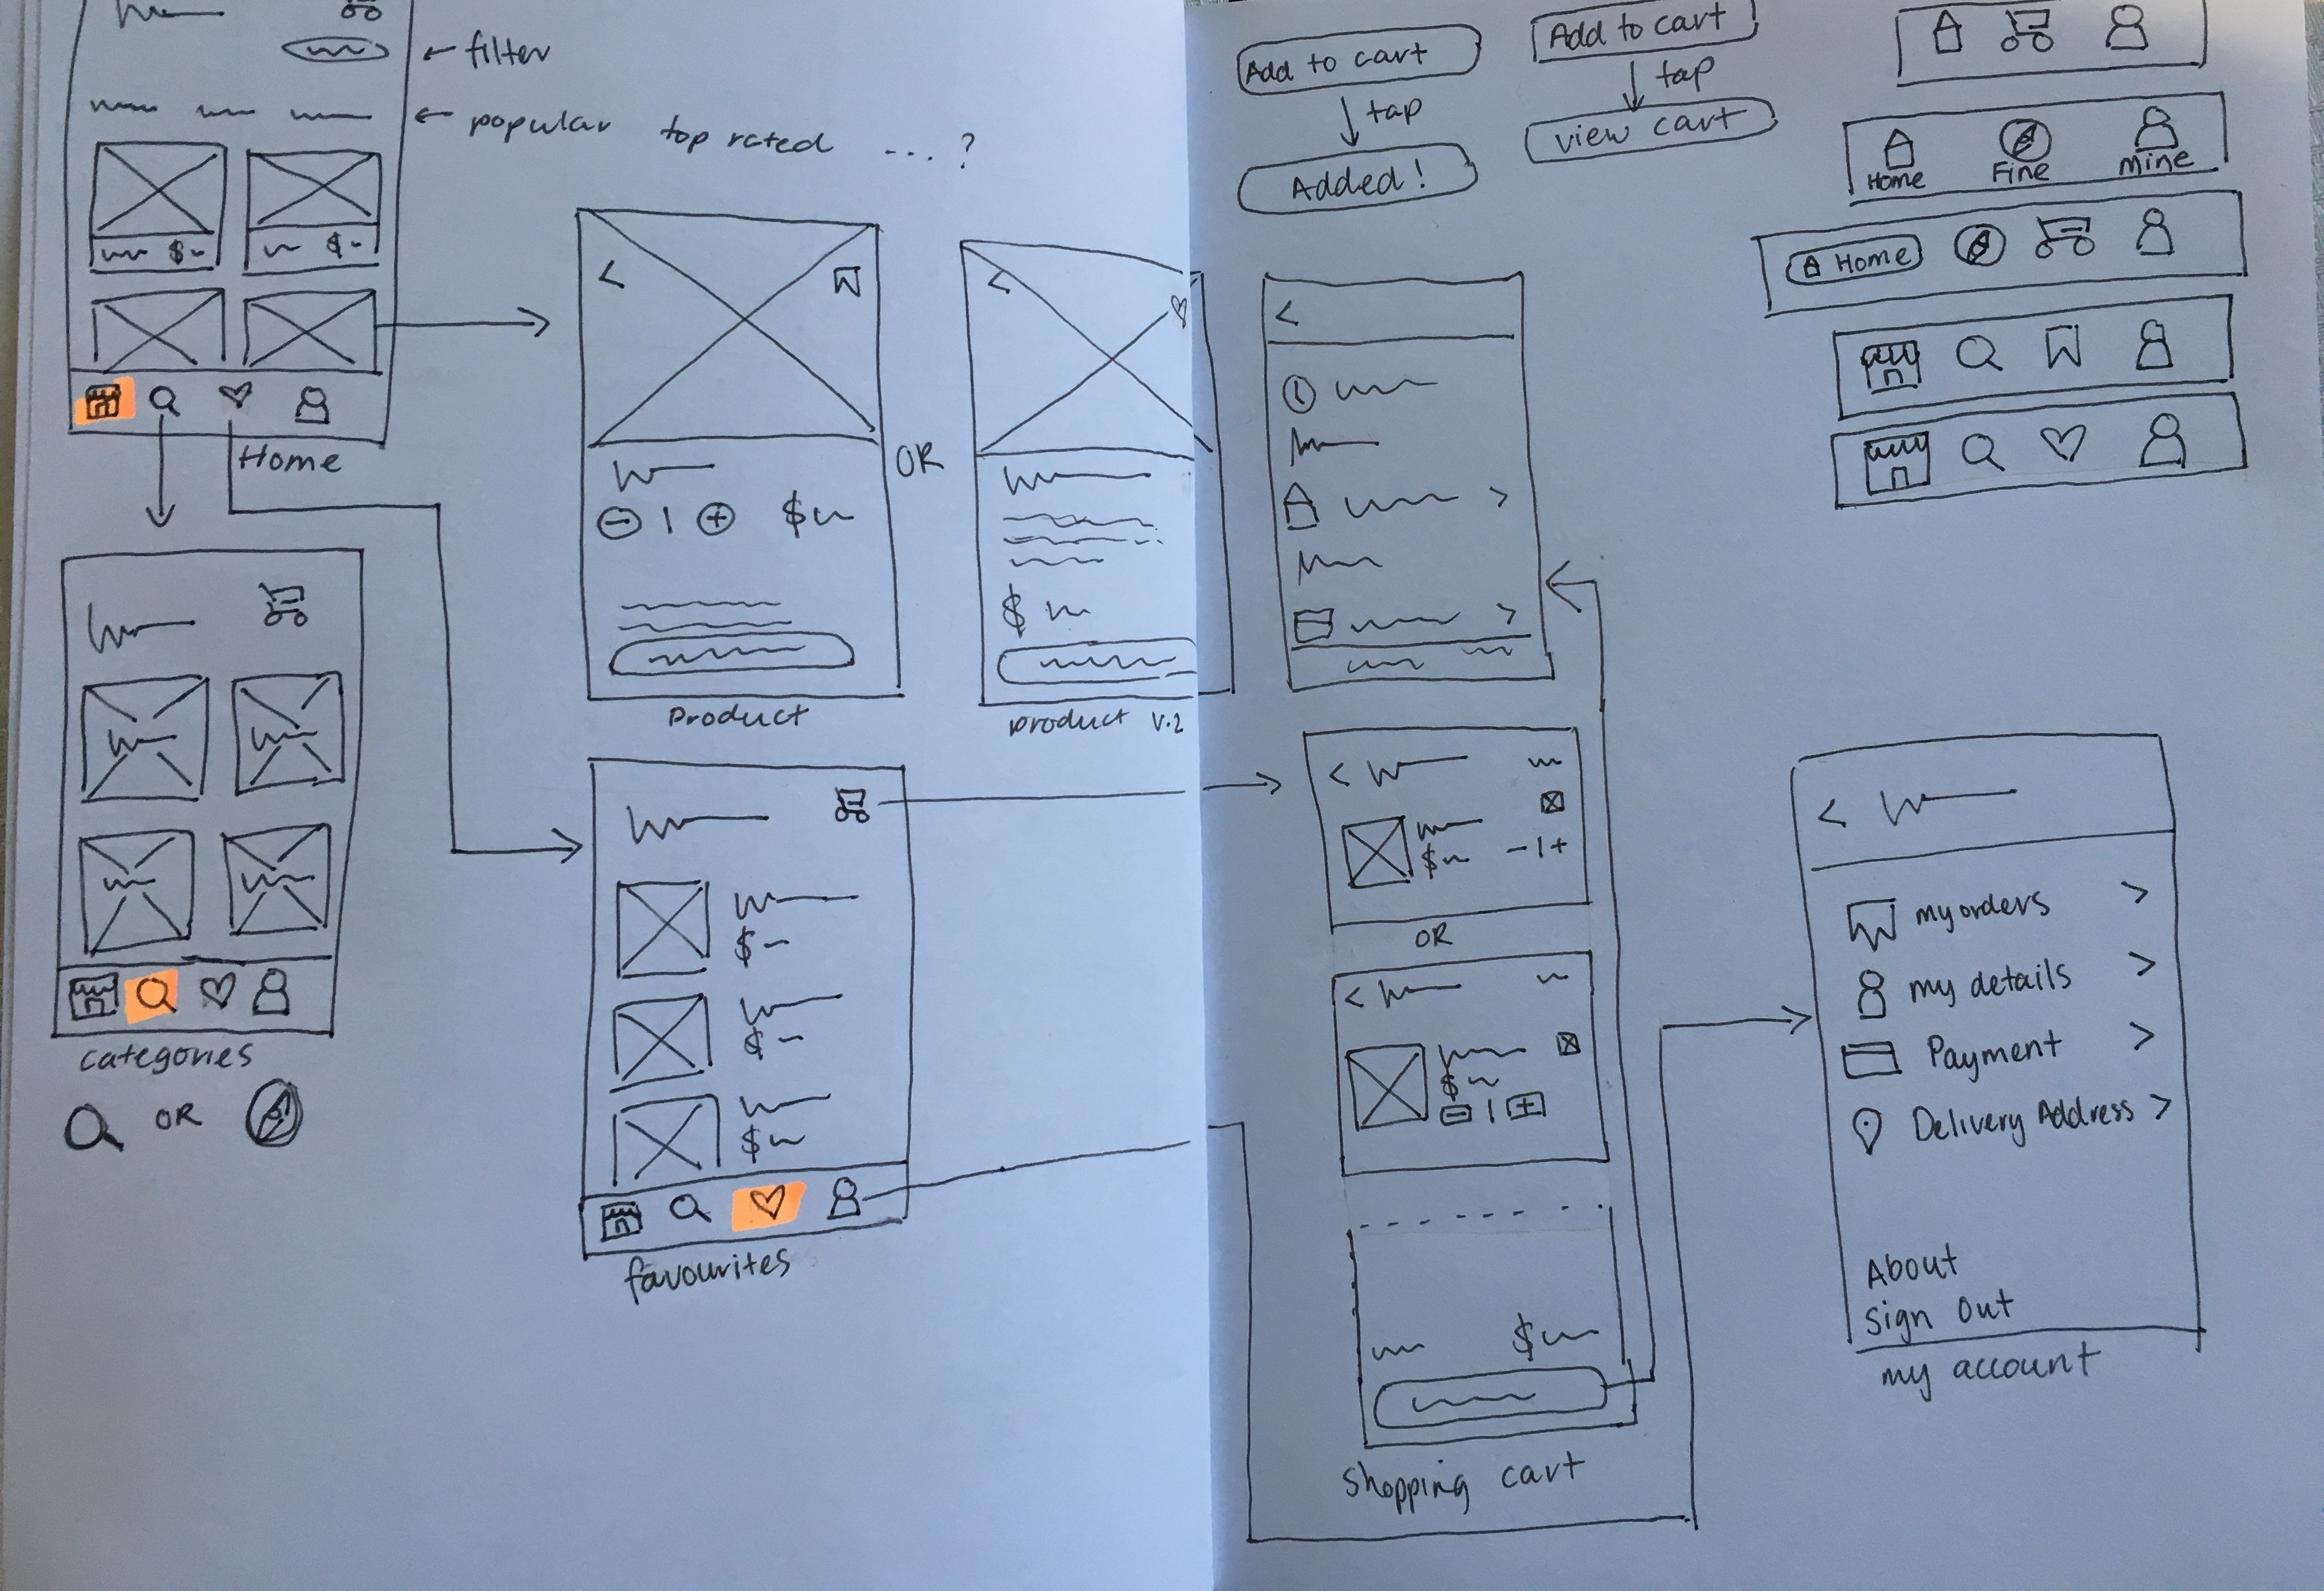 filter
popular top rated ....?
$
$
Home
OR
1
$
Product
$
product v.2
categories
OR
$
$
$
favourites
Add to cart
tap
Added!
Add to cart
tap
view cart
Home Fine Mine
Home
$ - 1 +
OR
$
1
$
shopping cart
my orders >
my details >
Payment >
Delivery Address >
About
Sign Out
my account